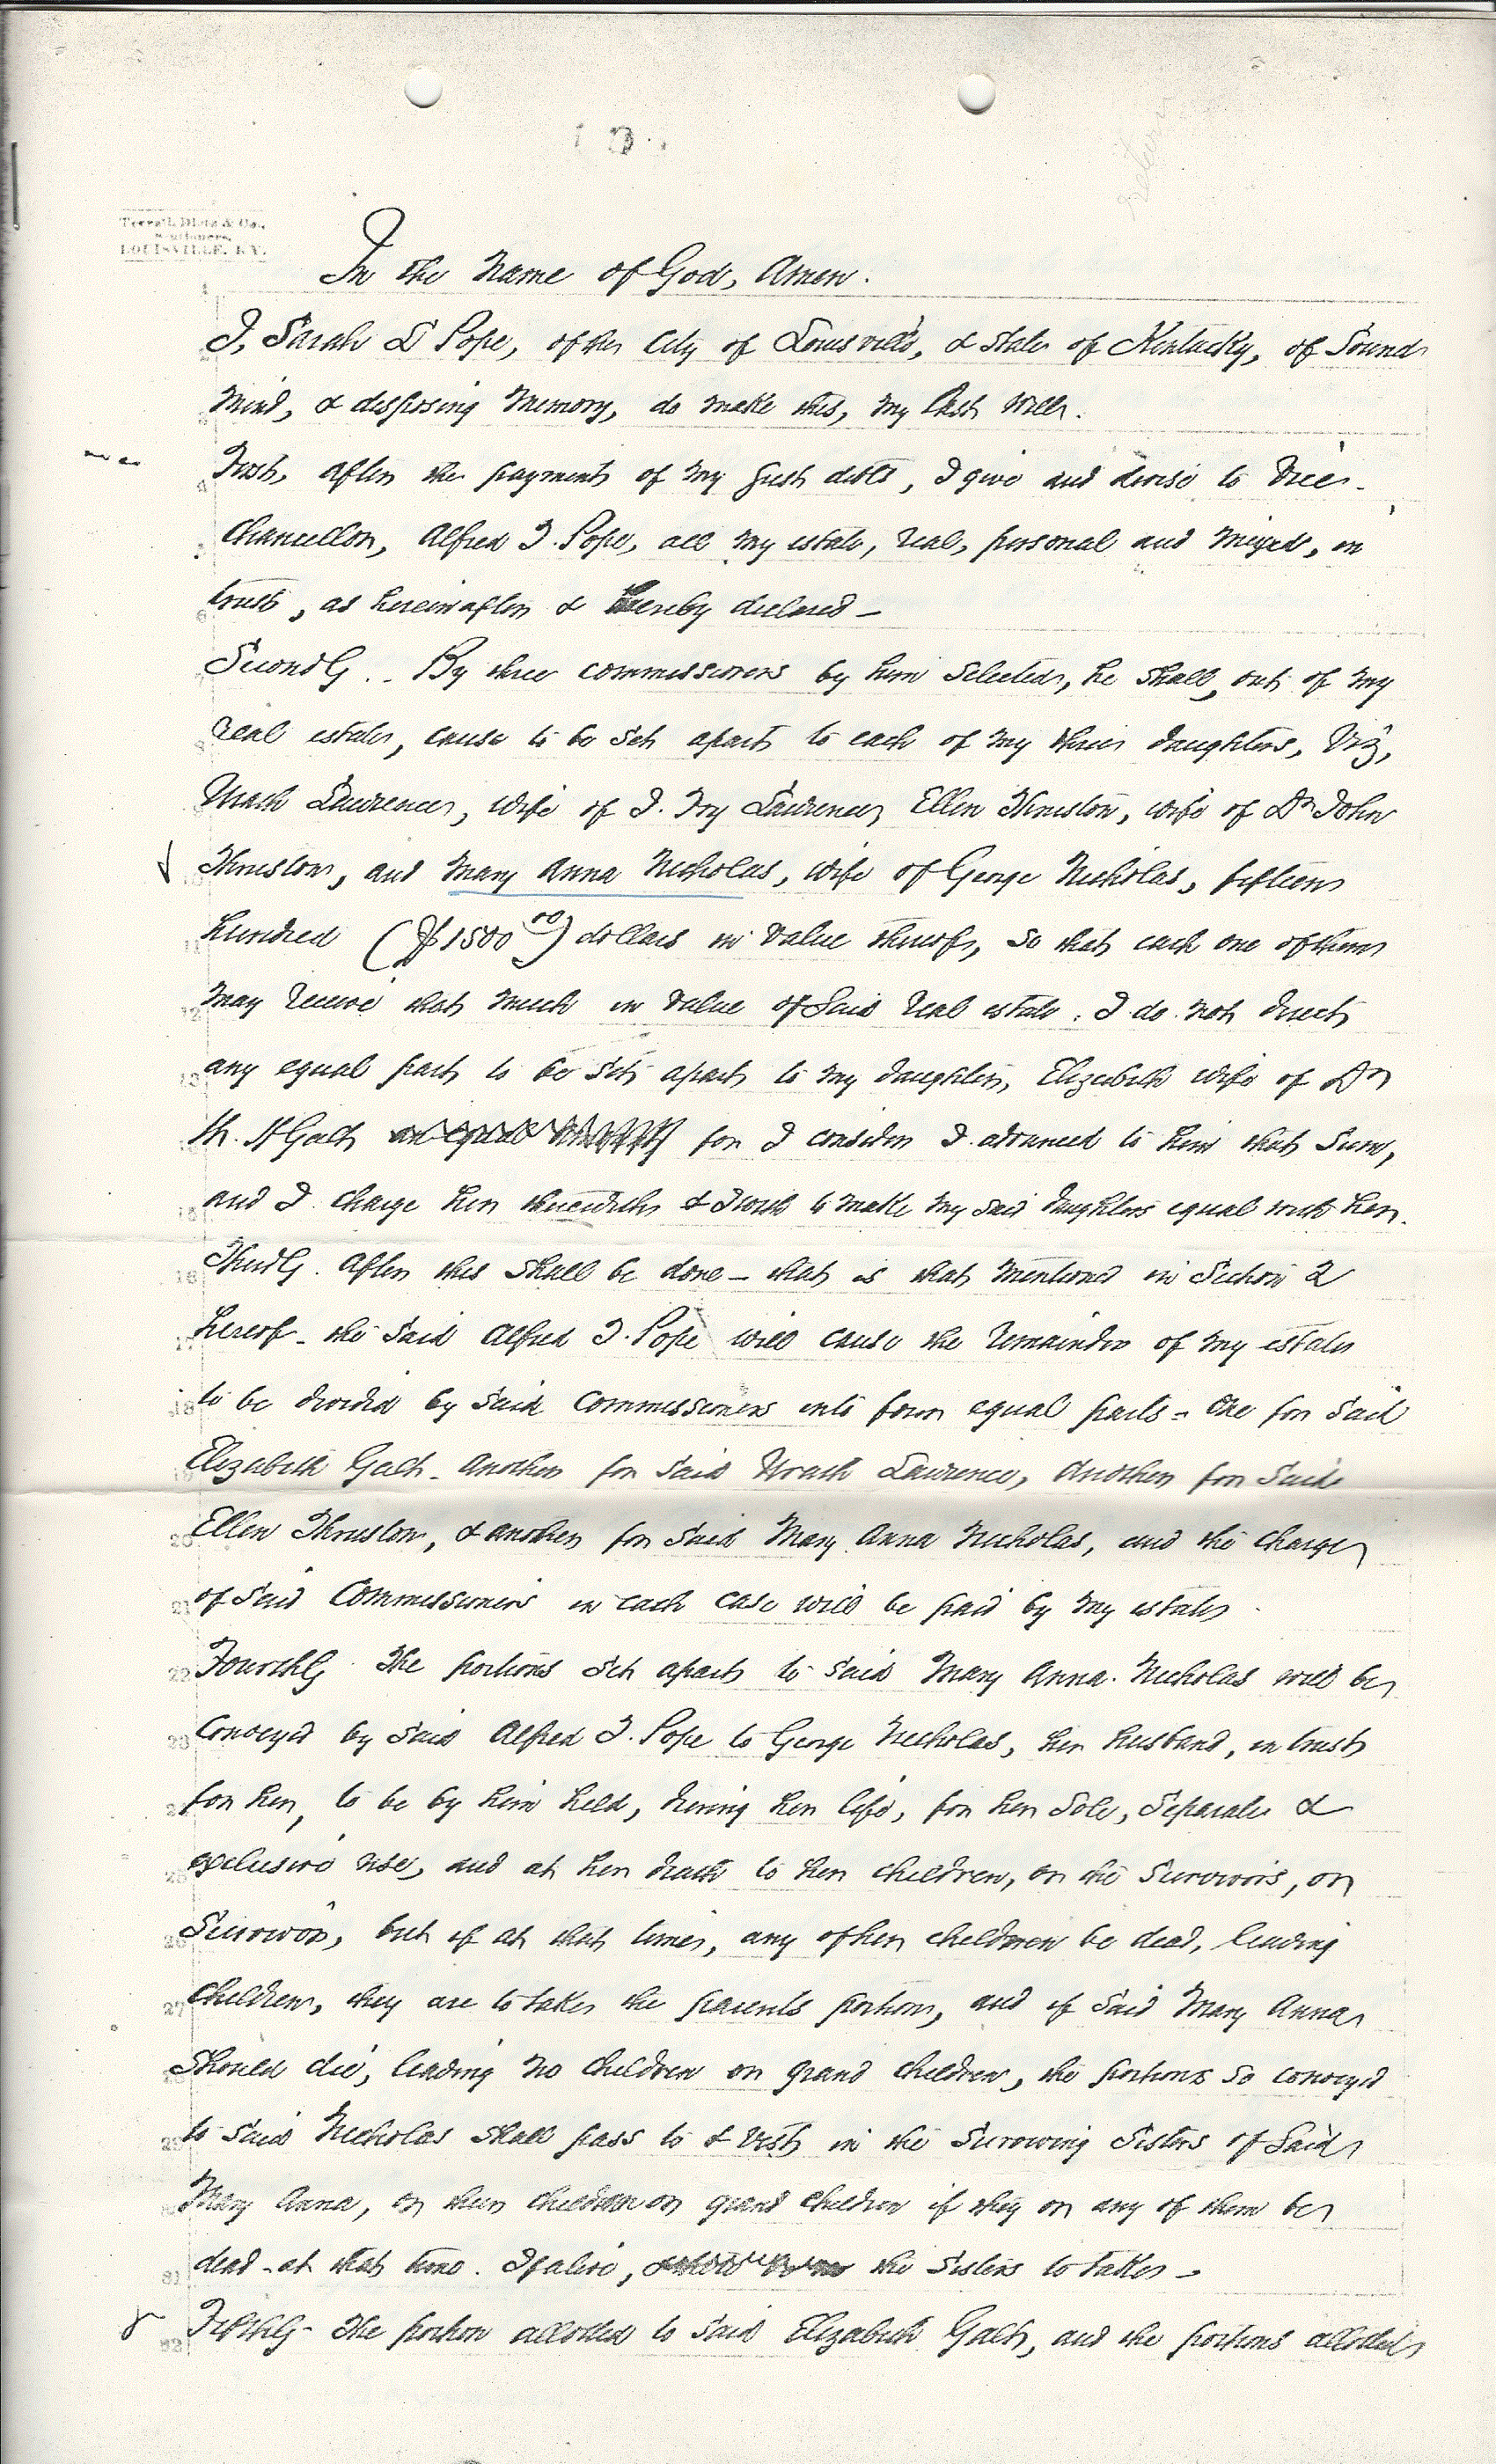 Louisville, Ky.
In the Name of God, Amen.
I, Sarah L Pope, of the City of Louisville, & State of Kentucky, of Sound
Mind, & disposing Memory, do make this, my Last Will.
First, After the payment of my just debts, I give and devise to Vice-
Chancellor, Alfred T. Pope, all my estate, real, personal and mixed, in
trust, as hereinafter & hereby declared -
Secondly.. By three commissioners by him Selected, he shall, out of my
real estate, cause to be set apart to each of my three daughters, Viz,
Urath Lawrence, wife of Lawrence, Ellen Thruston, wife of Dr John
Thruston, and Mary Anna Nicholas, wife of George Nicholas, fifteen
hundred ($1500 00) dollars in value thereof, so that each one of them
may receive that much in value of said real estate. I do not direct
any equal part to be set apart to my daughter, Elizabeth wife of Dr
Galt for I consider I advanced to him that Sum,
and I charge her therewith & I wish to make my said daughters equal with her.
Thirdly. After this shall be done - that is that mentioned in Section 2
hereof - the said Alfred T. Pope will cause the remainder of my estate
to be divided by said commissioners into four equal parts - One for said
Elizabeth Galt - Another for said Urath Lawrence, Another for said
Ellen Thruston, & another for said Mary Anna Nicholas, and the charge
of said Commissioners in each case will be paid by my estate
Fourthly. The portions set apart to said Mary Anna Nicholas will be
conveyed by said Alfred T. Pope to George Nicholas, her husband, in trust
for her, to be by him held, during her life, for her sole, separate &
exclusive use, and at her death to her children, or the survivors, or
Survivor, but if at that time, any of her children be dead, leaving
children, they are to take the parents portion, and if said Mary Anna
should die, leaving no children or grand children, the portions so conveyed
to said Nicholas shall pass to & vest in the surviving sisters of said
Mary Anna, or their children or grand children if they or any of them be
dead at that time. If alive, the sisters to take -
Fifthly - The portion allotted to said Elizabeth Galt, and the portions allotted